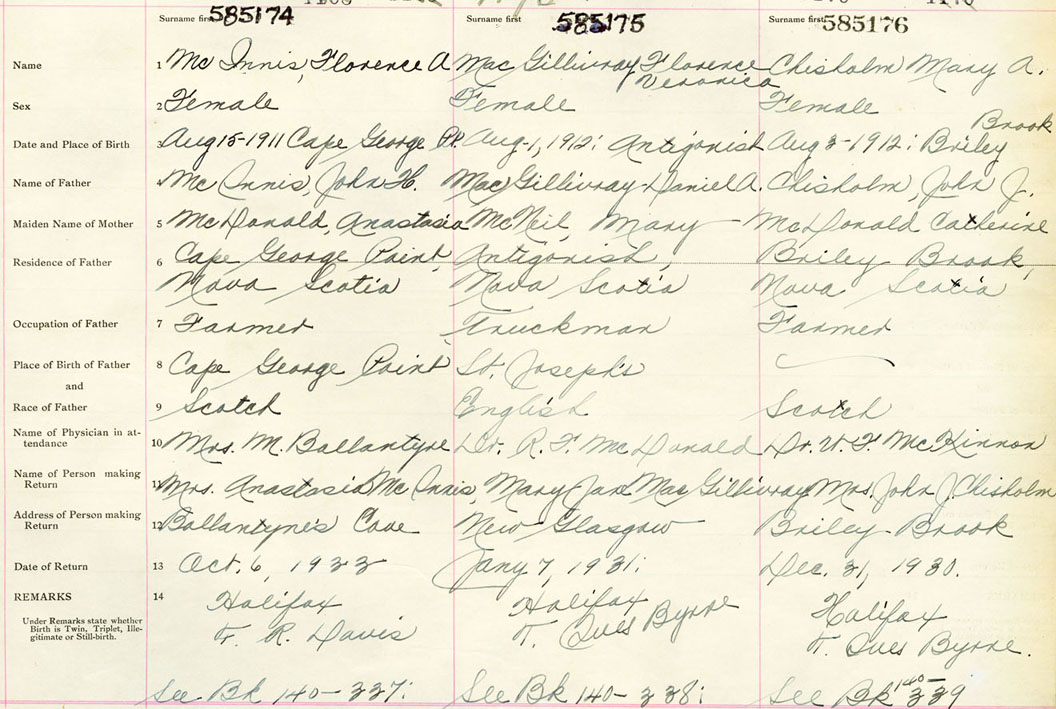 Surname first 585174 Surname first 585175 Surname first 585176
Name 1 Mc Innis, Florence A Mac Gillivray Florence Veronica Chisholm Mary A.
Sex 2 Female Female Female
Date and Place of Birth 3 Aug 15-1911 Cape George Pt. Aug-1, 1912: Antigonish Aug 3-1912: Briley Brook
Name of Father 4 Mc Innis, John H. Mac Gillivray Daniel A. Chisholm, John J.
Maiden Name of Mother 5 McDonald, Anastasia McNeil, Mary McDonald Catherine
Residence of Father 6 Cape George Point, Antigonish, Briley Brook,
Nova Scotia Nova Scotia Nova Scotia
Occupation of Father 7 Farmer Truckman Farmer
Place of Birth of Father 8 Cape George Point St. Joseph's
and
Race of Father 9 Scotch English Scotch
Name of Physician in at-
tendance 10 Mrs. M. Ballantyne Dr. R. F. McDonald Dr. W. F. McKinnon
Name of Person making
Return 11 Mrs. Anastasia Mc Innis, Mary Jan Mac Gillivray Mrs. John J. Chisholm
Address of Person making
Return 12 Ballantyne's Cove New Glasgow Briley Brook
Date of Return 13 Oct. 6, 1933 Jany 7, 1931: Dec. 31, 1930.
REMARKS 14 Halifax Halifax Halifax
Under Remarks state whether
Birth is Twin, Triplet, Ille-
gitimate or Still-birth.
F. R. Davis T. Ives Byrne T. Ives Byrne.
See Bk 140-337: See Bk 140-338: See Bk 140-339